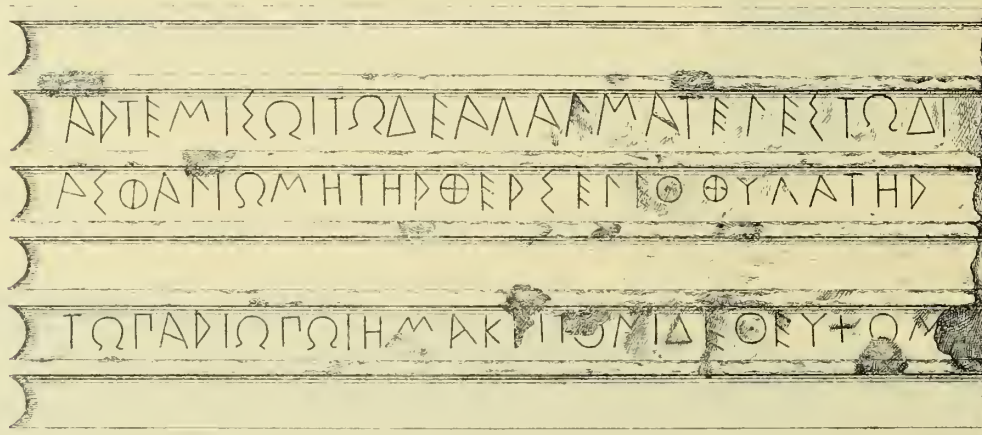 ΑΡΤΕΜΙΣΩΙΤΩΔΕΑΓΑΛΜΑΤΕΛΕΣΤΩΔΙ
ΑΣΦΑΛΙΩΜΗΤΗΡΘΕΡΣΕΛΕΟΘΥΓΑΤΗΡ
ΤΩΠΑΡΙΩΠΩΙΗΜΑΚΡΙΤΩΝΙΔΕΟΕΥΧΩΜ